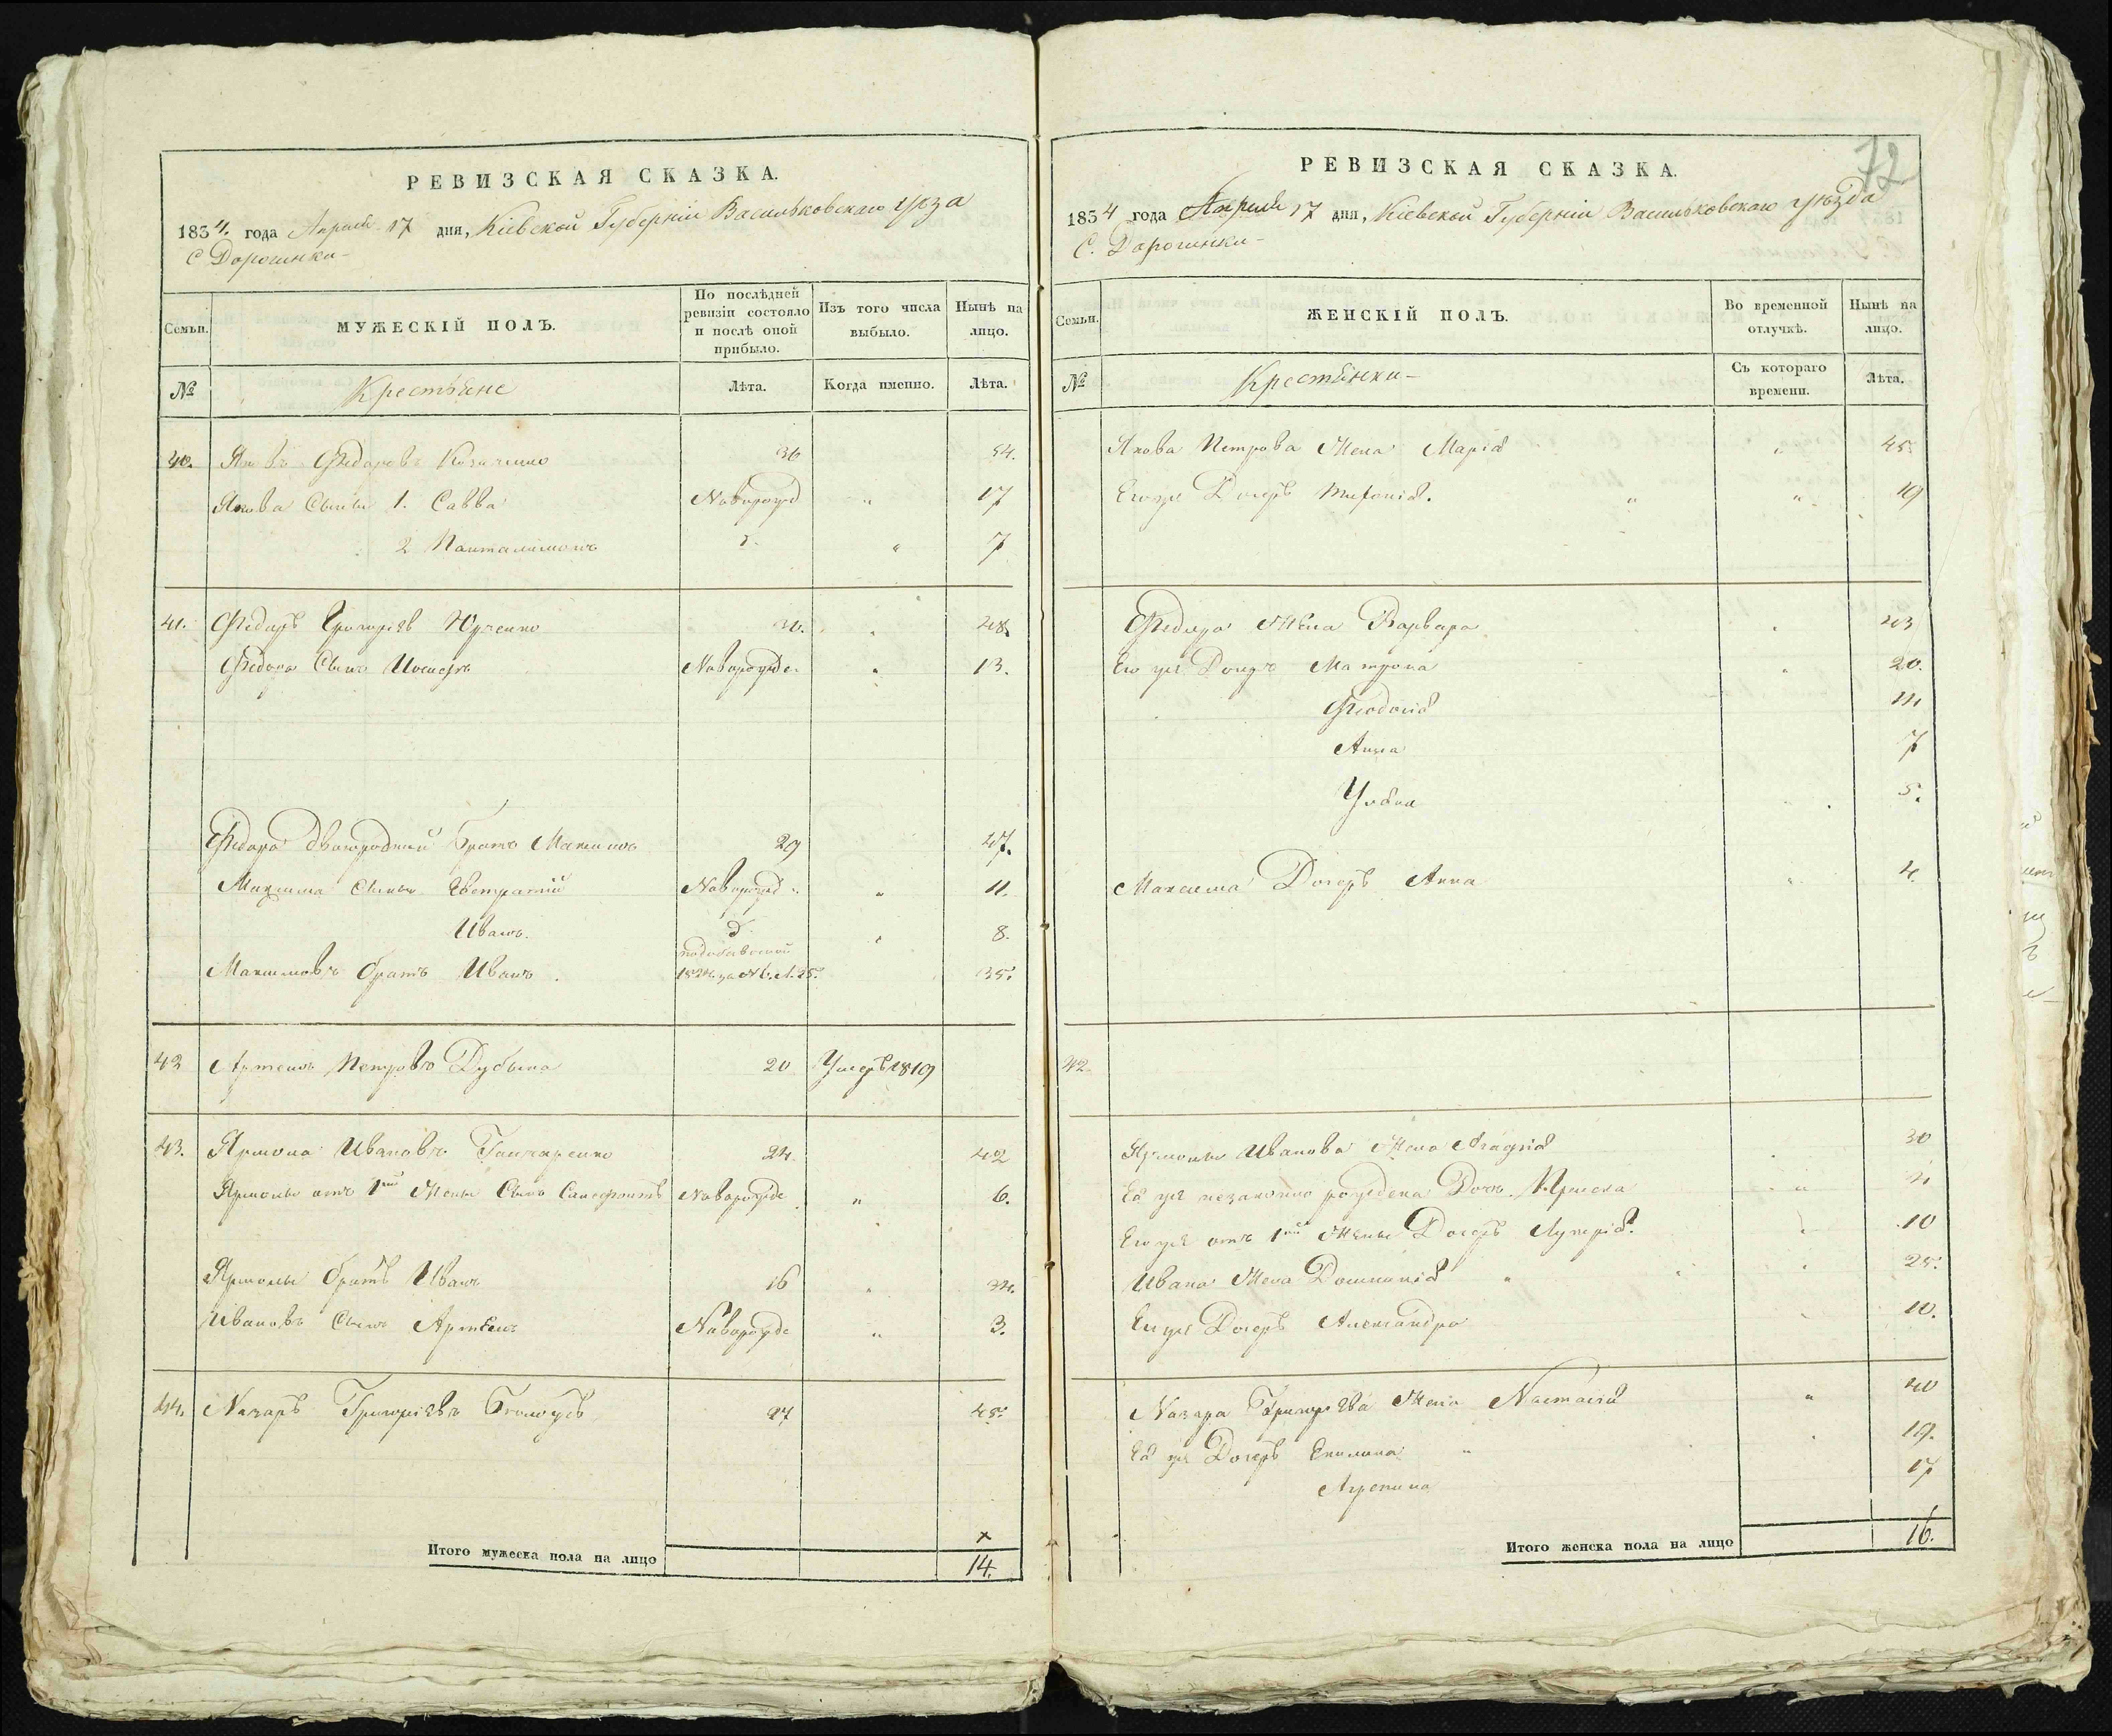 РЕВИЗСКАЯ СКАЗКА.
1834. года Апреля 17 дня, Кіевской Губерніи Васильковскаго уѣзда
С Дорогинки
Семьи.
МУЖЕСКІЙ ПОЛЪ.
По послѣдней ревизіи состояло и послѣ оной прибыло.
Изъ того числа выбыло.
Нынѣ на лицо.
№
Крестьяне
Лѣта.
Когда именно.
Лѣта.
40. Яковъ Федоровъ 36 54.
Якова Сыны 1. Савва Новорожд " 17
2 Панталимонъ " 7
41. Федоръ Григоріевъ Юрченко 30. " 48.
Федора Сынъ Иосифъ Новорожде " 13.
Федора двоюродный братъ Максимъ 29 47.
Максима сыны Евстратій Новорожд " 11.
Иванъ. " 8.
Максимовъ братъ Иванъ 35.
42 Артемъ Петровъ Дубына 20 Умеръ 1819
43. Ярмола Ивановъ Гончаренко 24. 42
Ярмолы отъ 1ой Жены Сынъ Новорожде " 6.
Ярмолы братъ Иванъ 16 " 34.
Ивановъ Сынъ Артемъ Новорожде " 3.
44. Назаръ Григоріевъ 27 45.
Итого мужеска пола на лицо
14.
72
РЕВИЗСКАЯ СКАЗКА.
1834 года Апреля 17 дня, Кіевской Губерніи Васильковскаго уѣзда
С. Дорогинки
Семьи.
ЖЕНСКІЙ ПОЛЪ.
Во временной отлучкѣ.
Нынѣ на лицо.
№
Крестьянки
Съ котораго времени.
Лѣта.
Якова Петрова Жена Марія " 45.
Его же Дочерь " " 19
Федора Жена Варвара " 43
Его же Дочерь Матрона " 20.
Феодосія
Анна 7
Уляна 5.
Максима Дочерь Анна " 4.
42.
Ярмолы Иванова Жена 30
Ея же незаконно рождена Дочь "
Его же отъ 1ой Жены Дочерь 10
Ивана Жена Домникія " 25.
Его же Дочерь Александра 10.
Назара Григоріева Жена Настасія " 40
Ея же Дочерь Екилина " 19.
Агрепина 17
Итого женска пола на лицо
16.